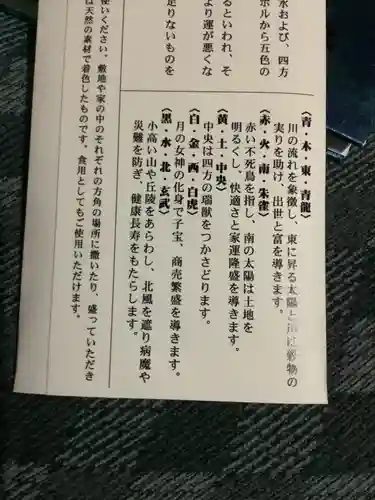 水および、四方
ボルから五色の
るといわれ、そ
より運が悪くな
足りないものを
〈青・木・東・青龍〉
川の流れを象徴し、東に昇る太陽と雨は穀物の
実りを助け、出世と富を導きます。
〈赤・火・南・朱雀〉
赤い不死鳥を指し、南の太陽は土地を
明るくし、快適さと家運隆盛を導きます。
〈黄・土・中央〉
中央は四方の瑞獣をつかさどります。
〈白・金・西・白虎〉
月の女神の化身で子宝、商売繁盛を導きます。
〈黒・水・北・玄武〉
小高い山や丘陵をあらわし、北風を遮り病魔や
災難を防ぎ、健康長寿をもたらします。
使いください。敷地や家の中のそれぞれの方角の場所に撒いたり、盛っていただき
は天然の素材で着色したものです。食用としてもご使用いただけます。